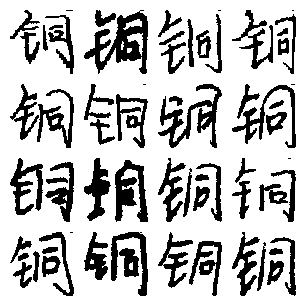 铜铜铜铜
铜铜铜铜
铜铜铜铜
铜铜铜铜